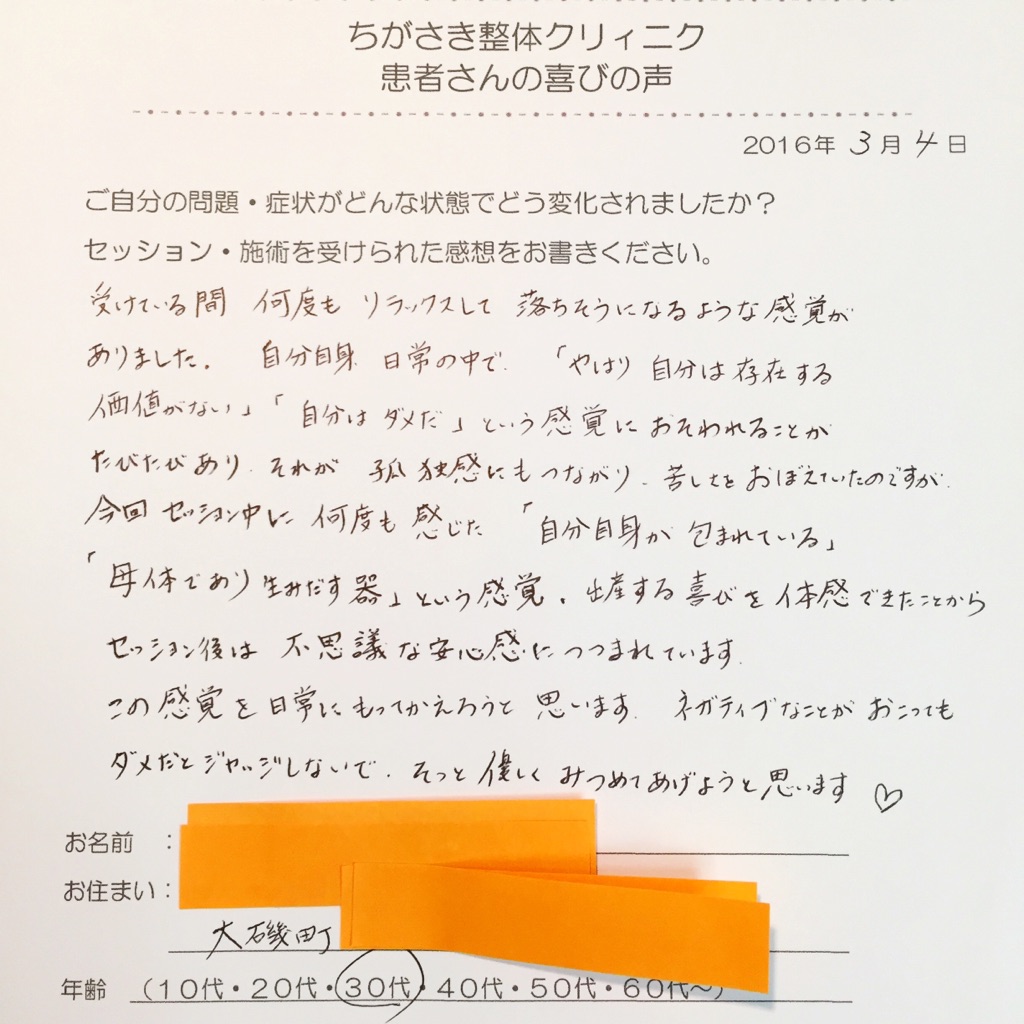 ちがさき整体クリィニク
患者さんの喜びの声
2016年 3月 4日
ご自分の問題・症状がどんな状態でどう変化されましたか？
セッション・施術を受けられた感想をお書きください。
受けている間 何度も リラックスして 落ちそうになるような感覚が
ありました. 自分自身 日常の中で. 「やはり 自分は存在する
価値がない」「自分は ダメだ」という感覚に おそわれることが
たびたびあり. それが 孤独感にもつながり. 苦しさを おぼえていたのですが.
今回 セッション中に 何度も 感じた 「自分自身が 包まれている」
「母体であり 生みだす器」という感覚. 出産する喜びを 体感できたことから
セッション後は 不思議な安心感につつまれています.
この感覚を日常にもってかえろうと 思います. ネガティブなことが おこっても
ダメだとジャッジしないで. そっと 優しく みつめてあげようと思います♡
お名前 :
お住まい:
大磯町
年齢 （10代・20代・30代・40代・50代・60代～）